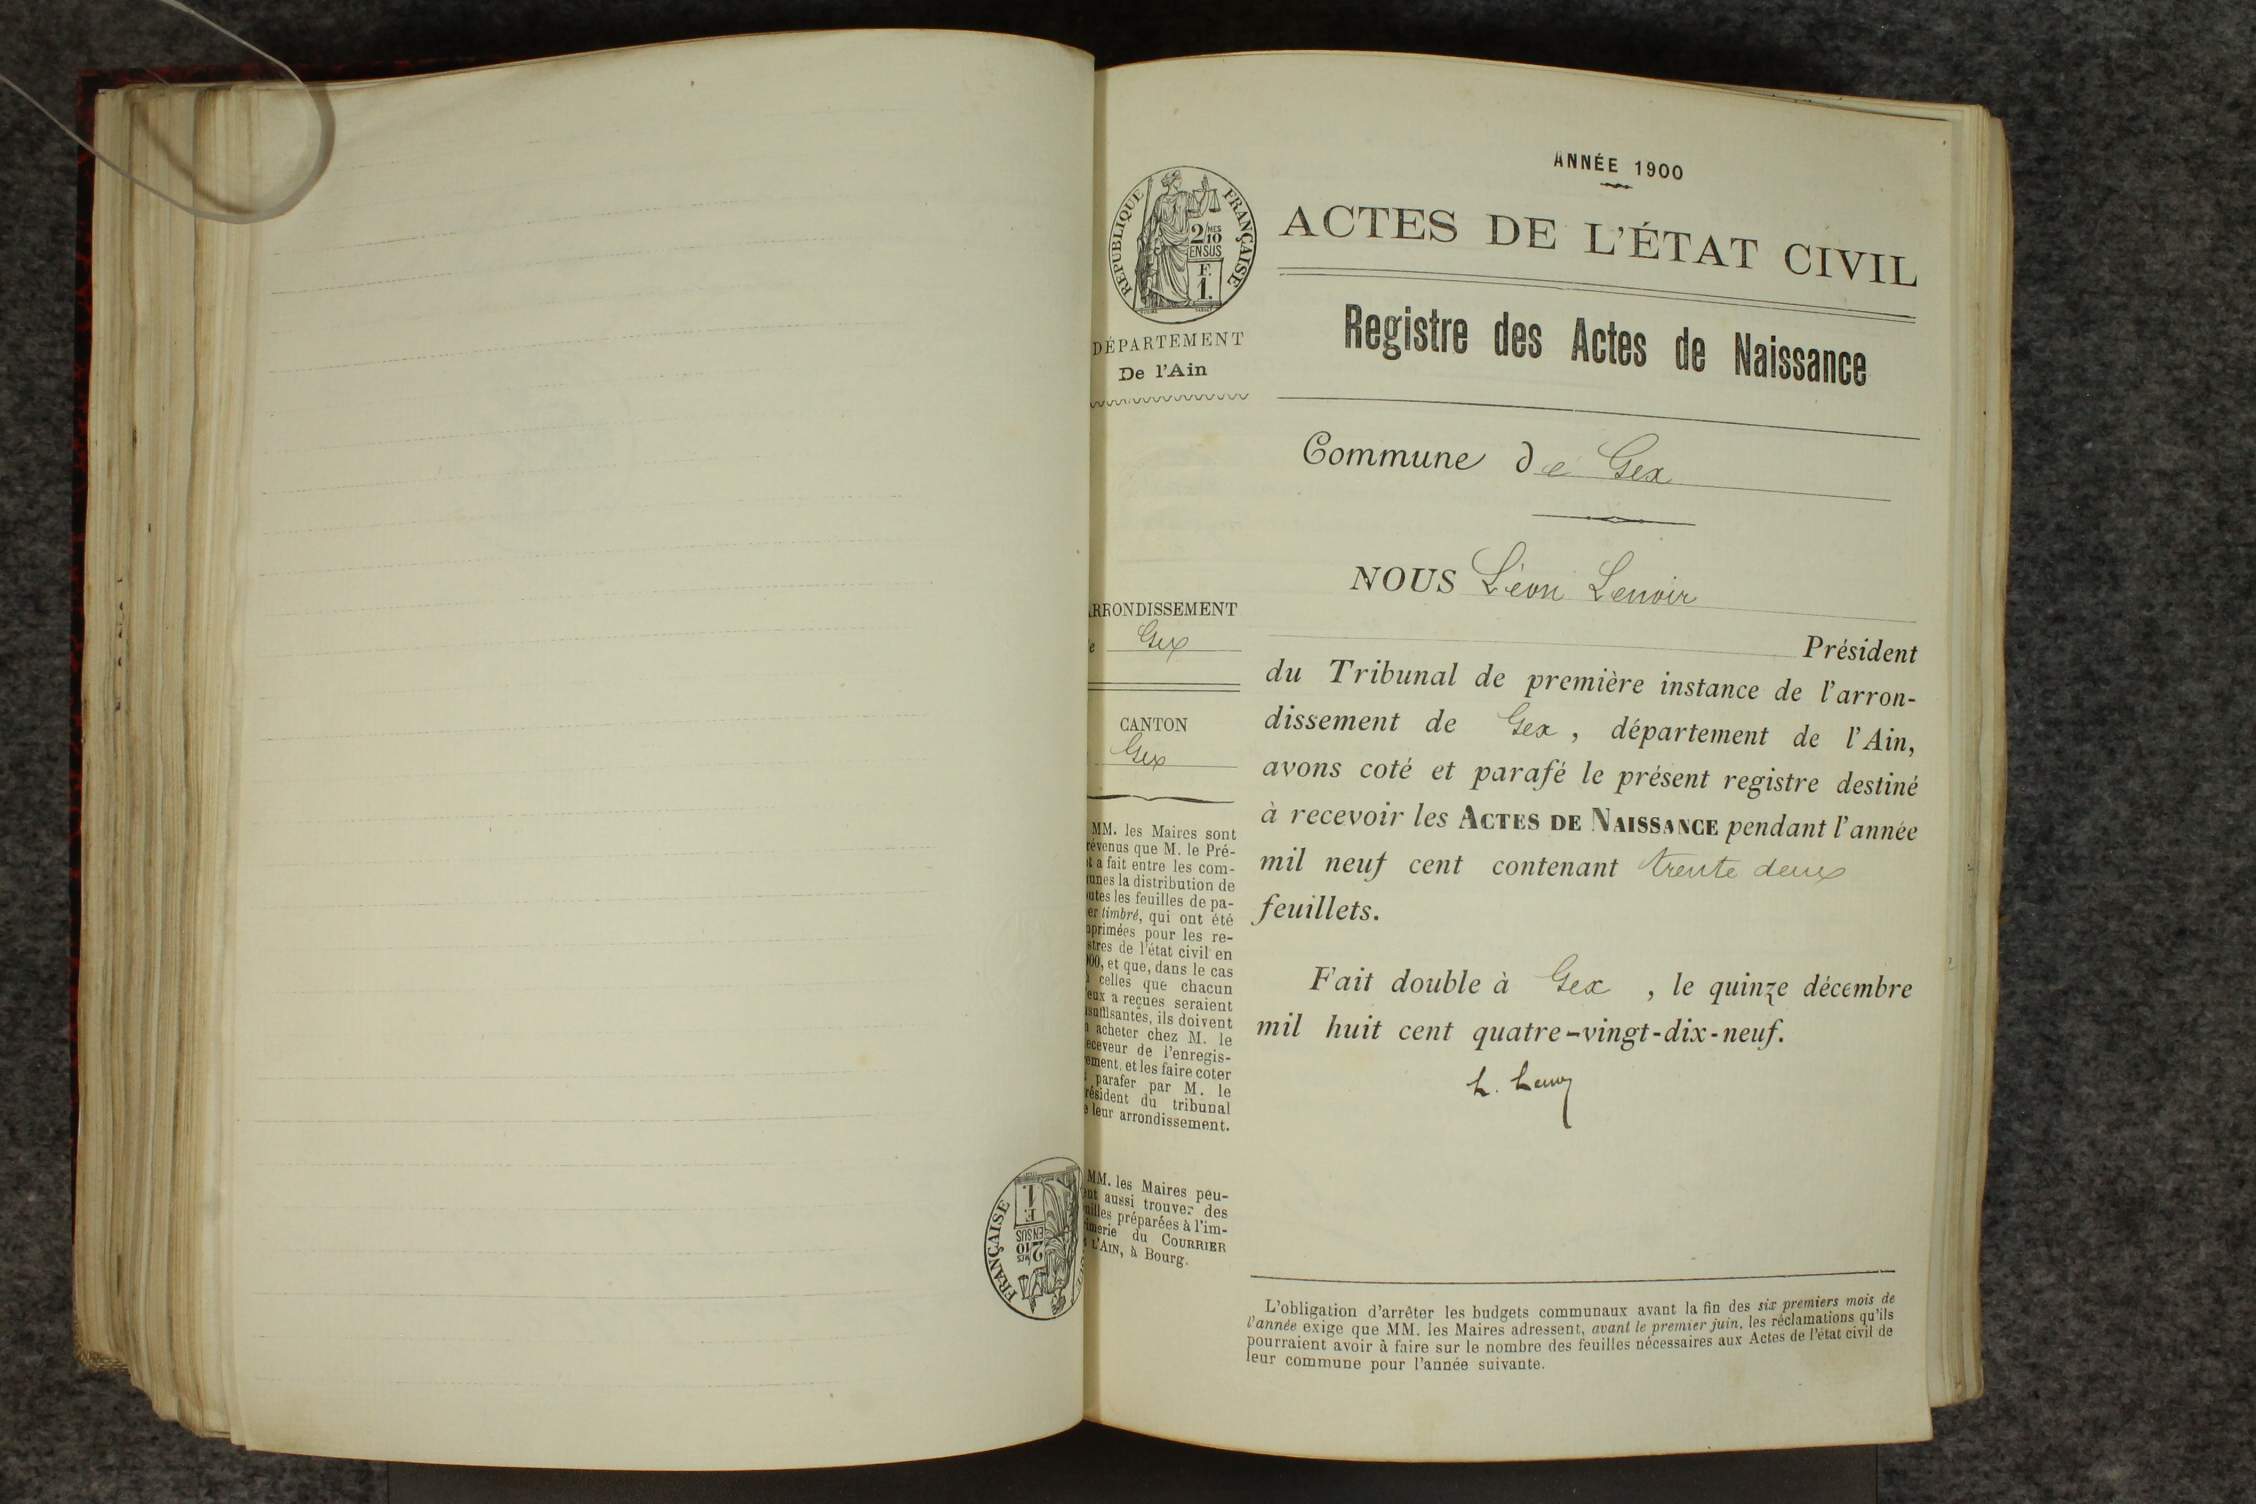 ANNÉE 1900
ACTES DE L'ÉTAT CIVIL
Registre des Actes de Naissance
Commune de Gex
NOUS Léon Lenoir
Président
du Tribunal de première instance de l'arron-
dissement de Gex, département de l'Ain,
avons coté et parafé le présent registre destiné
à recevoir les ACTES DE NAISSANCE pendant l'année
mil neuf cent contenant trente deux
feuillets.
Fait double à Gex, le quinze décembre
mil huit cent quatre-vingt-dix-neuf.
L. Lenoir
L'obligation d'arrêter les budgets communaux avant la fin des six premiers mois de
l'année exige que MM. les Maires adressent, avant le premier juin, les réclamations qu'ils
pourraient avoir à faire sur le nombre des feuilles nécessaires aux Actes de l'état civil de
leur commune pour l'année suivante.
RÉPUBLIQUE FRANÇAISE
2/10 MES
EN SUS
F.
1.
DÉPARTEMENT
De l'Ain
RRONDISSEMENT
e Gex
CANTON
Gex
MM. les Maires sont
révenus que M. le Pré-
t a fait entre les com-
unes la distribution de
utes les feuilles de pa-
er timbré, qui ont été
primées pour les re-
stres de l'état civil en
00, et que, dans le cas
celles que chacun
eux a reçues seraient
suffisantes, ils doivent
acheter chez M. le
eceveur de l'enregis-
ement, et les faire coter
parafer par M. le
résident du tribunal
e leur arrondissement.
MM. les Maires peu-
nt aussi trouver des
uilles préparées à l'im-
imerie du COURRIER
L'AIN, à Bourg.
FRANÇAISE
2/10 MES
EN SUS
F.
1.